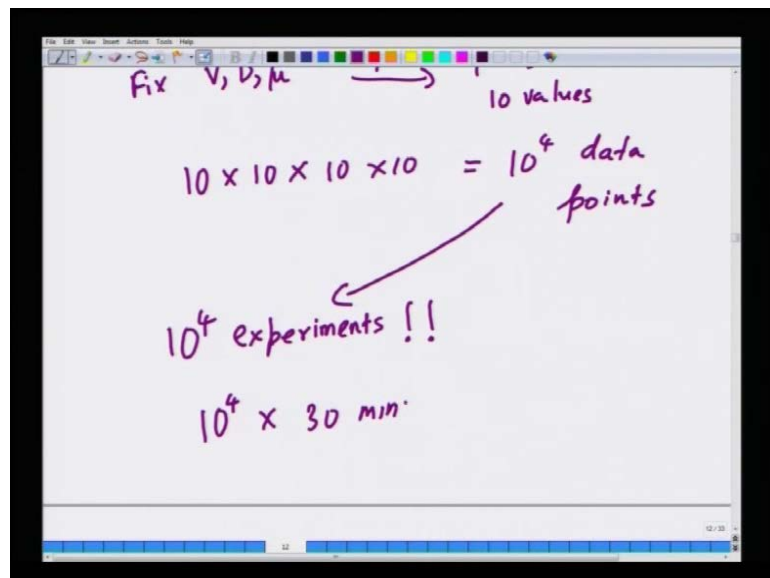 File Edit View Insert Actions Tools Help
Fix V, D, μ →
10 values
10 × 10 × 10 × 10 = 10⁴ data
points
10⁴ experiments !!
10⁴ × 30 min.
12 / 33
12